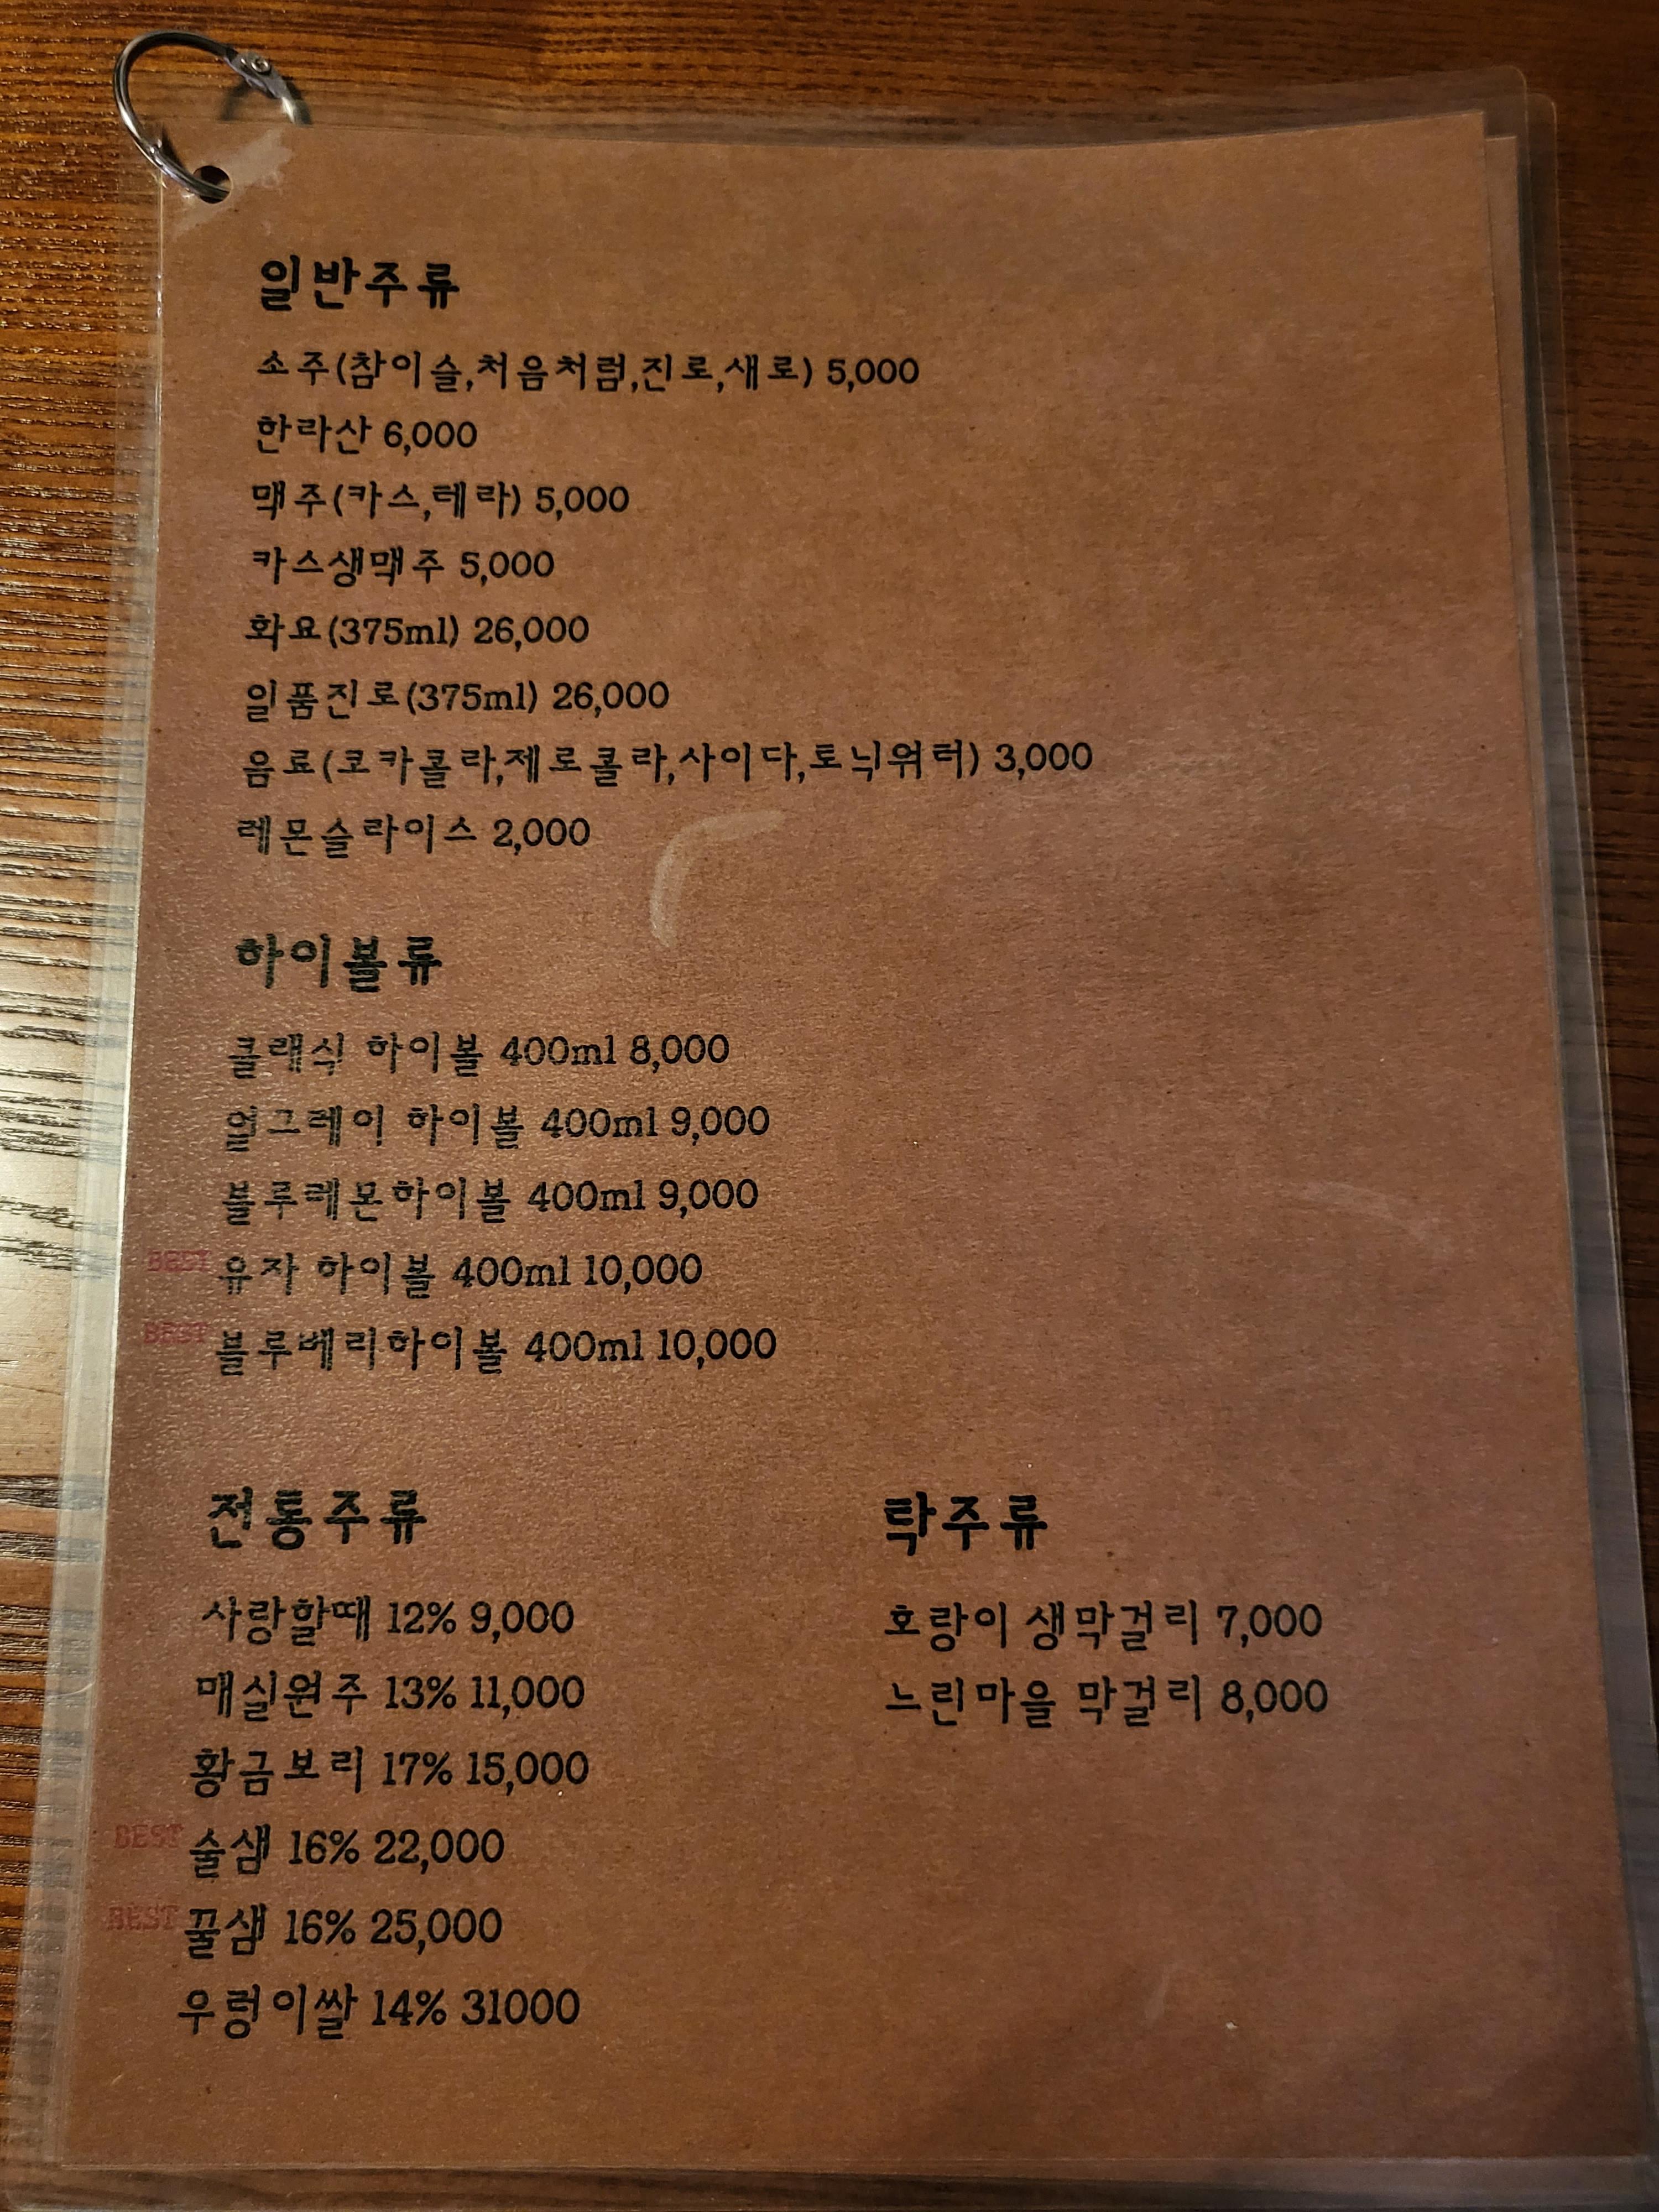 일반주류
소주(참이슬,처음처럼,진로,새로) 5,000
한라산 6,000
맥주(카스,테라) 5,000
카스생맥주 5,000
화요(375ml) 26,000
일품진로(375ml) 26,000
음료(코카콜라,제로콜라,사이다,토닉워터) 3,000
레몬슬라이스 2,000
하이볼류
클래식 하이볼 400ml 8,000
얼그레이 하이볼 400ml 9,000
블루레몬하이볼 400ml 9,000
BEST 유자 하이볼 400ml 10,000
BEST 블루베리하이볼 400ml 10,000
전통주류
사랑할때 12% 9,000
매실원주 13% 11,000
황금보리 17% 15,000
BEST 술샘 16% 22,000
BEST 꿀샘 16% 25,000
우렁이쌀 14% 31000
탁주류
호랑이 생막걸리 7,000
느린마을 막걸리 8,000